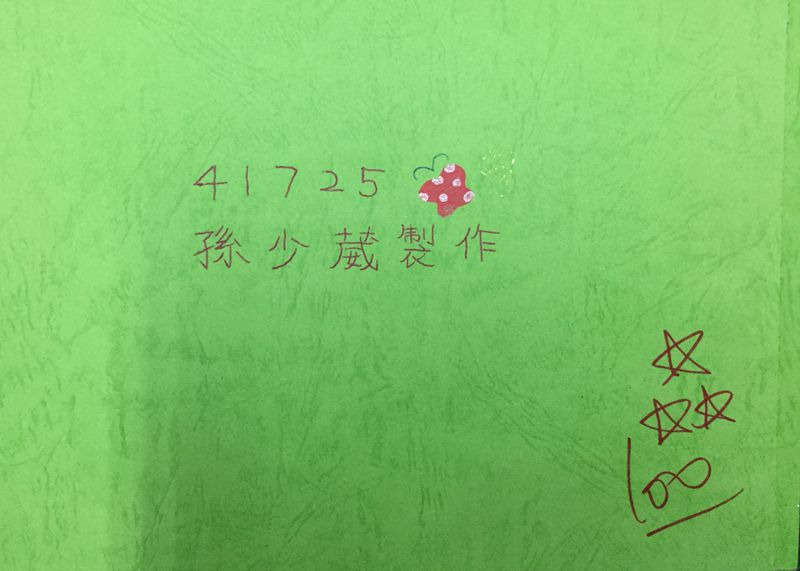 41725
孫少葳製作
100